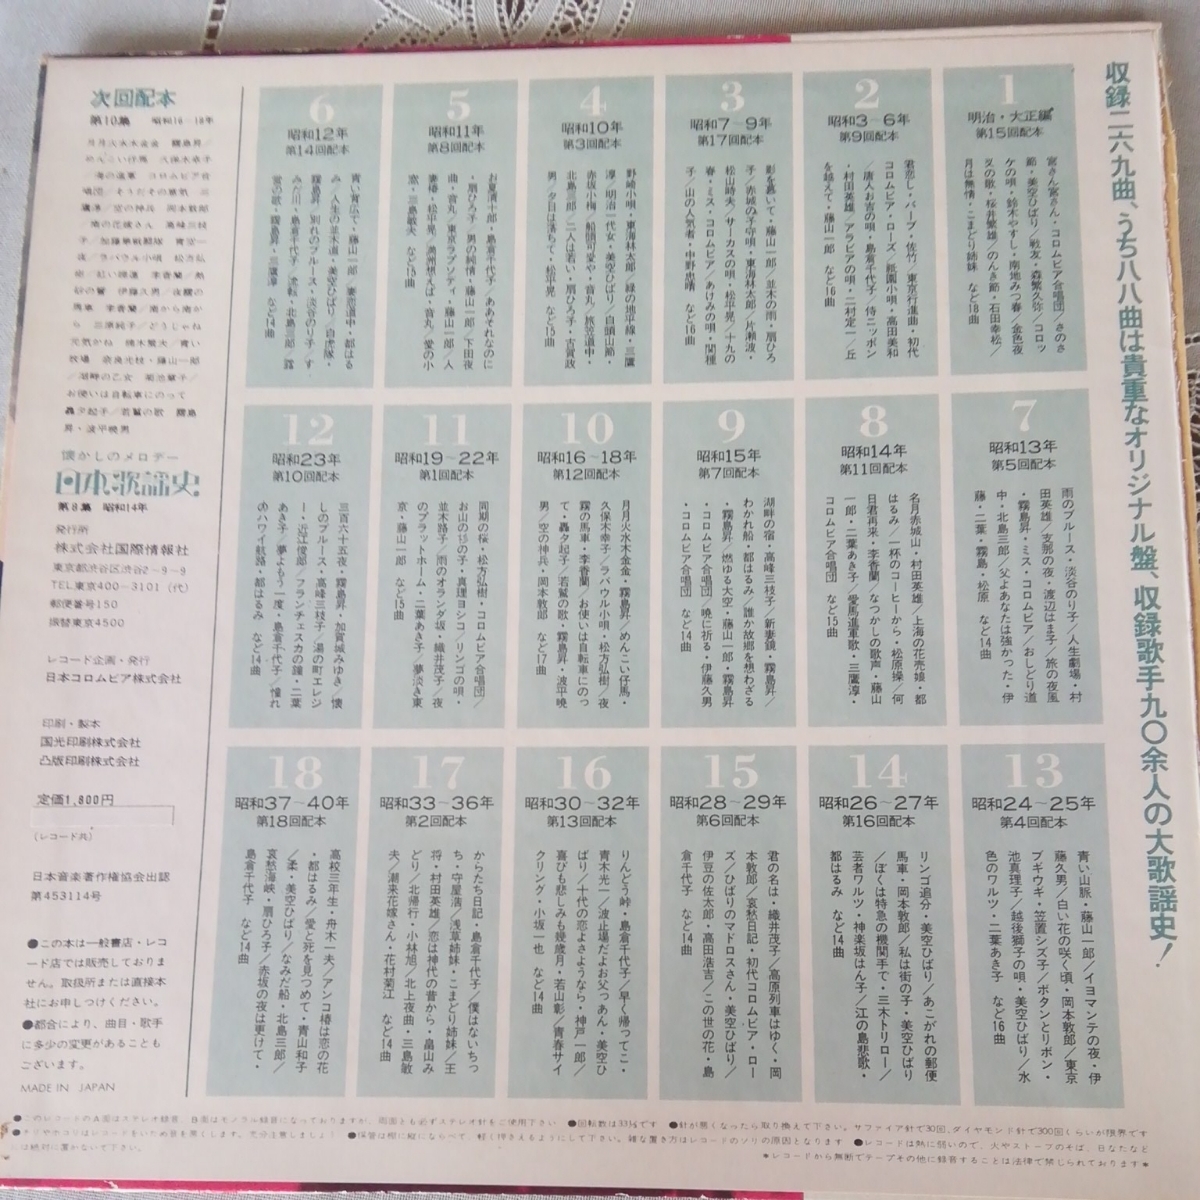 収録二六九曲、うち八八曲は貴重なオリジナル盤、収録歌手九〇余人の大歌謡史！
1
明治・大正編
第15回配本
宮さん宮さん・コロムビア合唱団／さのさ
節・美空ひばり／戦友・森繁久弥／コロッ
ケの唄・鈴木やすし・南地みつ春／金色夜
叉の歌・桜井繁雄／のんき節・石田幸松／
月は無情・こまどり姉妹 など18曲
2
昭和3～6年
第9回配本
君恋し・バーブ・佐竹／東京行進曲・初代
コロムビア・ローズ／祇園小唄・高田美和
／唐人お吉の唄・島倉千代子／侍ニッポン
・村田英雄／アラビアの唄・二村定一／丘
を越えて・藤山一郎 など16曲
3
昭和7～9年
第17回配本
影を慕いて・藤山一郎／並木の雨・扇ひろ
子／赤城の子守唄・東海林太郎／片瀬波・
松山時夫／サーカスの唄・松平晃／十九の
春・ミス・コロムビア／あけみの唄・関種
子／山の人気者・中野忠晴 など16曲
4
昭和10年
第3回配本
野崎小唄・東海林太郎／緑の地平線・三鷹
淳／明治一代女・美空ひばり／白頭山節・
赤坂小梅／船頭可愛や・音丸／旅笠道中・
北島三郎／二人は若い・扇ひろ子・古賀政
男／夕日は落ちて・松平晃 など15曲
5
昭和11年
第8回配本
お夏清十郎・島倉千代子／ああそれなのに
・扇ひろ子／男の純情・藤山一郎／下田夜
曲・音丸／東京ラプソディ・藤山一郎／人
妻椿・松平晃／満洲想えば・音丸／愛の小
窓・三島敏夫 など15曲
6
昭和12年
第14回配本
青い背広で・藤山一郎／妻恋道中・都はる
み／人生の並木道・美空ひばり／白虎隊・
霧島昇／別れのブルース・淡谷のり子／す
みだ川・島倉千代子／流転・北島三郎／露
営の歌・霧島昇・三鷹淳 など14曲
7
昭和13年
第5回配本
雨のブルース・淡谷のり子／人生劇場・村
田英雄／支那の夜・渡辺はま子／旅の夜風
・霧島昇・ミス・コロムビア／おしどり道
中・北島三郎／父よあなたは強かった・伊
藤・二葉・霧島・松原 など14曲
8
昭和14年
第11回配本
名月赤城山・村田英雄／上海の花売娘・都
はるみ／一杯のコーヒーから・松原操／何
日君再来・李香蘭／なつかしの歌声・藤山
一郎・二葉あき子／愛馬進軍歌・三鷹淳・
コロムビア合唱団 など15曲
9
昭和15年
第7回配本
湖畔の宿・高峰三枝子／新妻鏡・霧島昇／
わかれ船・都はるみ／誰か故郷を想わざる
・霧島昇／燃ゆる大空・藤山一郎・霧島昇
・コロムビア合唱団／暁に祈る・伊藤久男
・コロムビア合唱団 など14曲
10
昭和16～18年
第12回配本
月月火水木金金・霧島昇／めんこい仔馬・
久保木幸子／ラバウル小唄・松方弘樹／夜
霧の馬車・李香蘭／お使いは自転車にのっ
て・轟夕起子／若鷲の歌・霧島昇・波平暁
男／空の神兵・岡本敦郎 など17曲
11
昭和19～22年
第1回配本
同期の桜・松方弘樹・コロムビア合唱団／
お山の杉の子・真理ヨシコ／リンゴの唄・
並木路子／雨のオランダ坂・織井茂子／夜
のプラットホーム・二葉あき子／夢淡き東
京・藤山一郎 など15曲
12
昭和23年
第10回配本
三百六十五夜・霧島昇・加賀城みゆき／懐
しのブルース・高峰三枝子／湯の町エレジ
ー・近江俊郎／フランチェスカの鐘・二葉
あき子／夢よもう一度・島倉千代子／憧れ
のハワイ航路・都はるみ など14曲
13
昭和24～25年
第4回配本
青い山脈・藤山一郎／イヨマンテの夜・伊
藤久男／白い花の咲く頃・岡本敦郎／東京
ブギウギ・笠置シズ子／ボタンとリボン・
池真理子／越後獅子の唄・美空ひばり／水
色のワルツ・二葉あき子 など16曲
14
昭和26～27年
第16回配本
リンゴ追分・美空ひばり／あこがれの郵便
馬車・岡本敦郎／私は街の子・美空ひばり
／ぼくは特急の機関手で・三木トリロー／
芸者ワルツ・神楽坂はん子／江の島悲歌・
都はるみ など14曲
15
昭和28～29年
第6回配本
君の名は・織井茂子／高原列車はゆく・岡
本敦郎／哀愁日記・初代コロムビア・ロー
ズ／ひばりのマドロスさん・美空ひばり／
伊豆の佐太郎・高田浩吉／この世の花・島
倉千代子 など14曲
16
昭和30～32年
第13回配本
りんどう峠・島倉千代子／早く帰ってこ・
青木光一／波止場だよお父つあん・美空ひ
ばり／十代の恋よさようなら・神戸一郎／
喜びも悲しみも幾歳月・若山彰／青春サイ
クリング・小坂一也 など14曲
17
昭和33～36年
第2回配本
からたち日記・島倉千代子／僕はないちっ
ち・守屋浩／浅草姉妹・こまどり姉妹／王
将・村田英雄／恋は神代の昔から・畠山み
どり／北帰行・小林旭／北上夜曲・三島敏
夫／潮来花嫁さん・花村菊江 など14曲
18
昭和37～40年
第18回配本
高校三年生・舟木一夫／アンコ椿は恋の花
・都はるみ／愛と死を見つめて・青山和子
／柔・美空ひばり／なみだ船・北島三郎／
哀愁海峡・扇ひろ子／赤坂の夜は更けて・
島倉千代子 など14曲
次回配本
第10集 昭和16～18年
月月火水木金金 霧島昇／
めんこい仔馬 久保木幸子
／海の進軍 コロムビア合
唱団／そうだその意気 三
鷹淳／空の神兵 岡本敦郎
／南の花嫁さん 高峰三枝
子／加藤隼戦闘隊 青空一
夜／ラバウル小唄 松方弘
樹／紅い睡蓮 李香蘭／熱
砂の誓 伊藤久男／夜霧の
馬車 李香蘭／南から南か
ら 三原純子／どうじゃね
元気かね 楠木繁夫／青い
牧場 奈良光枝・藤山一郎
／湖畔の乙女 菊池章子／
お使いは自転車にのって
轟夕起子／若鷲の歌 霧島
昇・波平暁男
懐かしのメロデー
日本歌謡史
第8集 昭和14年
発行所
株式会社国際情報社
東京都渋谷区渋谷2－9－9
TEL東京400－3101（代）
郵便番号150
振替東京4500
レコード企画・発行
日本コロムビア株式会社
印刷・製本
国光印刷株式会社
凸版印刷株式会社
定価1,800円
（レコード共）
日本音楽著作権協会出認
第453114号
●この本は一般書店・レコ
ード店では販売しておりま
せん。取扱所または直接本
社にお申しつけください。
●都合により、曲目・歌手
に多少の変更があることも
ございます。
MADE IN JAPAN
●このレコードのA面はステレオ録音、B面はモノラル録音になっておりますが、両面とも必ずステレオ針をご使用下さい ●回転数は33⅓です ●針が悪くなったら取り換えて下さい。サファイア針で30回、ダイヤモンド針で300回くらいが限界です
●チリやホコリはレコードをいため音を悪くします。充分注意しましょう ●保管は棚に縦にならべて、軽く押さえるようにして下さい。雑な置き方はレコードのソリの原因となります ●レコードは熱に弱いので、火やストーブのそば、日なたなど
には絶対に置かないで下さい。
＊レコードから無断でテープその他に録音することは法律で禁じられております＊